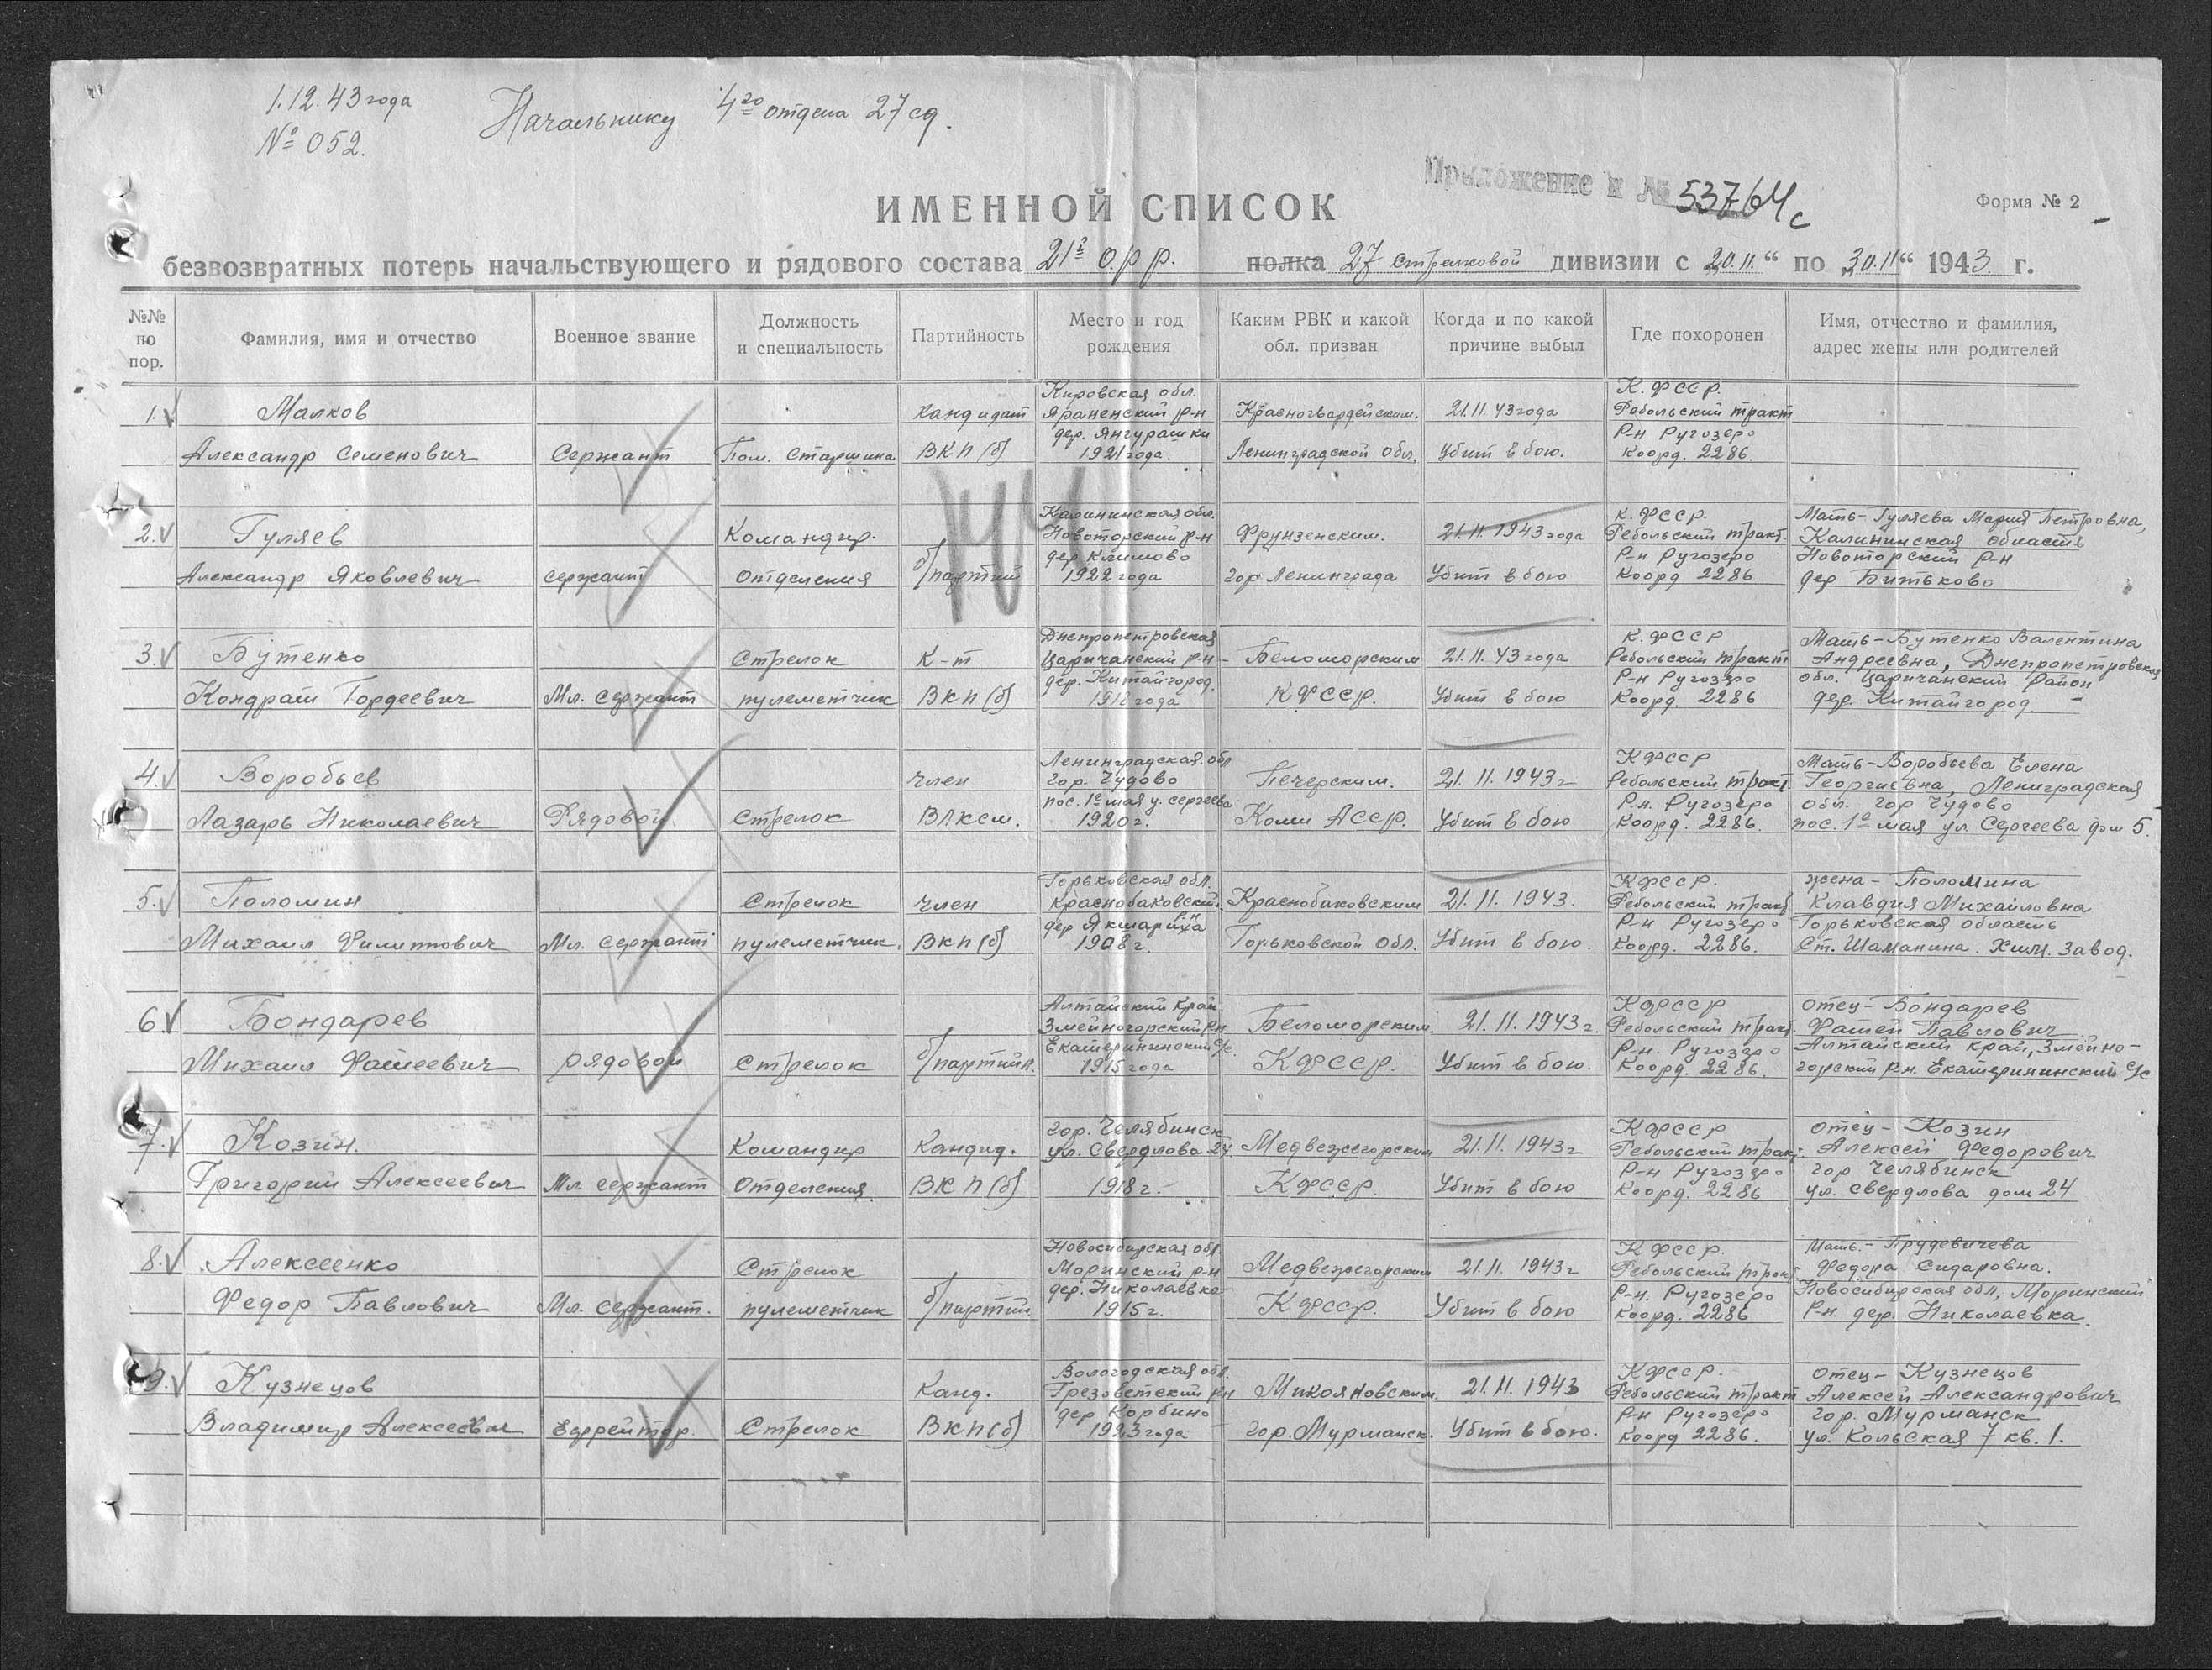 1.12.43 года
№ 052.
Начальнику 4го отдела 27 сд.
Приложение к № 53764с
Форма № 2
ИМЕННОЙ СПИСОК
безвозвратных потерь начальствующего и рядового состава 21й о.р.р. полка 27 стрелковой дивизии с „20.11.“ по „30.11“ 1943. г.
№№ по пор.
Фамилия, имя и отчество
Военное звание
Должность и специальность
Партийность
Место и год рождения
Каким РВК и какой обл. призван
Когда и по какой причине выбыл
Где похоронен
Имя, отчество и фамилия, адрес жены или родителей
1.
Малков
Александр Семенович
Сержант
Пом. Старшина
Кандидат
ВКП(б)
Кировская обл.
Яраненский р-н
дер. Янгурашки
1921 года.
Красногвардейским.
Ленинградской обл.
21.11.43 года
Убит в бою.
К.ФССР.
Ребольский тракт
Р-н Ругозеро
Коорд. 2286.
2.
Гуляев
Александр Яковлевич
сержант
Командир.
отделения
б/партий
Калининская обл.
Новоторский р-н
дер
1922 года
Фрунзенским.
гор Ленинграда
21.11.1943 года
Убит в бою
К.ФССР.
Ребольский тракт.
Р-н Ругозеро
Коорд 2286
Мать- Гуляева Мария Петровна,
Калининская область
Новоторский р-н
дер Битьково
3.
Бутенко
Кондрат Гордеевич
Мл. сержант
Стрелок
пулеметчик
К-т
ВКП(б)
Днепропетровская
Царичанский р-н
дер. Китайгород.
1918 года
Беломорским
КФССР.
21.11.43 года
Убит в бою
К.ФССР
Ребольский тракт
Р-н Ругозеро
Коорд. 2286
Мать-Бутенко Валентина
Андреевна, Днепропетровская
обл. Царичанский район
дер. Китайгород.
4.
Воробьев
Лазарь Николаевич
Рядовой
Стрелок
член
ВЛКСМ.
Ленинградская. обл
гор. Чудово
пос. 1е мая у. Сергеева
1920 г.
Печерским.
Коми АССР.
21.11.1943 г
Убит в бою
КФССР
Ребольский тракт.
Р-н. Ругозеро
Коорд. 2286.
Мать-Воробьева Елена
Георгиевна, Ленинградская
обл. гор Чудово
пос. 1е мая ул Сергеева дом 5.
5.
Поломин
Михаил Филиппович
Мл. сержант
Стрелок
пулеметчик.
член
ВКП(б)
Горьковская обл.
Краснобаковский р-н
дер Якшариха
1908 г.
Краснобаковским
Горьковской обл.
21.11.1943.
Убит в бою.
КФССР.
Ребольский тракт
Р-н Ругозеро
Коорд. 2286.
жена- Поломина
Клавдия Михайловна
Горьковская область
Ст. Шаманина. Хим. завод.
6.
Бондарев
Михаил Фатеевич
рядовой
Стрелок
б/партийн.
Алтайский край
Змеиногорский р-н
Екатерининский с/с.
1915 года
Беломорским.
КФССР.
21.11.1943 г.
Убит в бою.
КФССР
Ребольский тракт.
Р-н. Ругозеро
Коорд. 2286.
отец- Бондарев
Фатей Павлович
Алтайский край, Змеино-
горский р-н. Екатерининский с/с
7.
Козин.
Григорий Алексеевич
Мл. сержант
Командир
отделения.
Кандид.
ВКП(б)
гор. Челябинск
ул. Свердлова 24.
1918 г.
Медвежегорским
КФССР.
21.11.1943 г
Убит в бою
КФССР
Ребольский тракт.
Р-н Ругозеро
Коорд. 2286
отец- Козин
Алексей Федорович
гор Челябинск
ул. Свердлова дом 24
8.
Алексеенко
Федор Павлович
Мл. сержант.
Стрелок
пулеметчик
б/партийн.
Новосибирская обл.
Моринский р-н
дер. Николаевка
1915 г.
Медвежегорским
КФССР.
21.11.1943 г
Убит в бою
КФССР.
Ребольский тракт
Р-н. Ругозеро
Коорд. 2286
Мать.- Прудевичева
Федора Сидаровна.
Новосибирская обл, Моринский
Р-н. дер. Николаевка.
9.
Кузнецов
Владимир Алексеевич
Ефрейтор
Стрелок
Канд.
ВКП(б)
Вологодская обл.
Грезоветский р-н
дер Корбино
1923 года
Микояновским.
гор. Мурманск.
21.11.1943
Убит в бою.
КФССР.
Ребольский тракт
Р-н Ругозеро
Коорд 2286.
отец- Кузнецов
Алексей Александрович
гор. Мурманск
ул. Кольская 7 кв. 1.